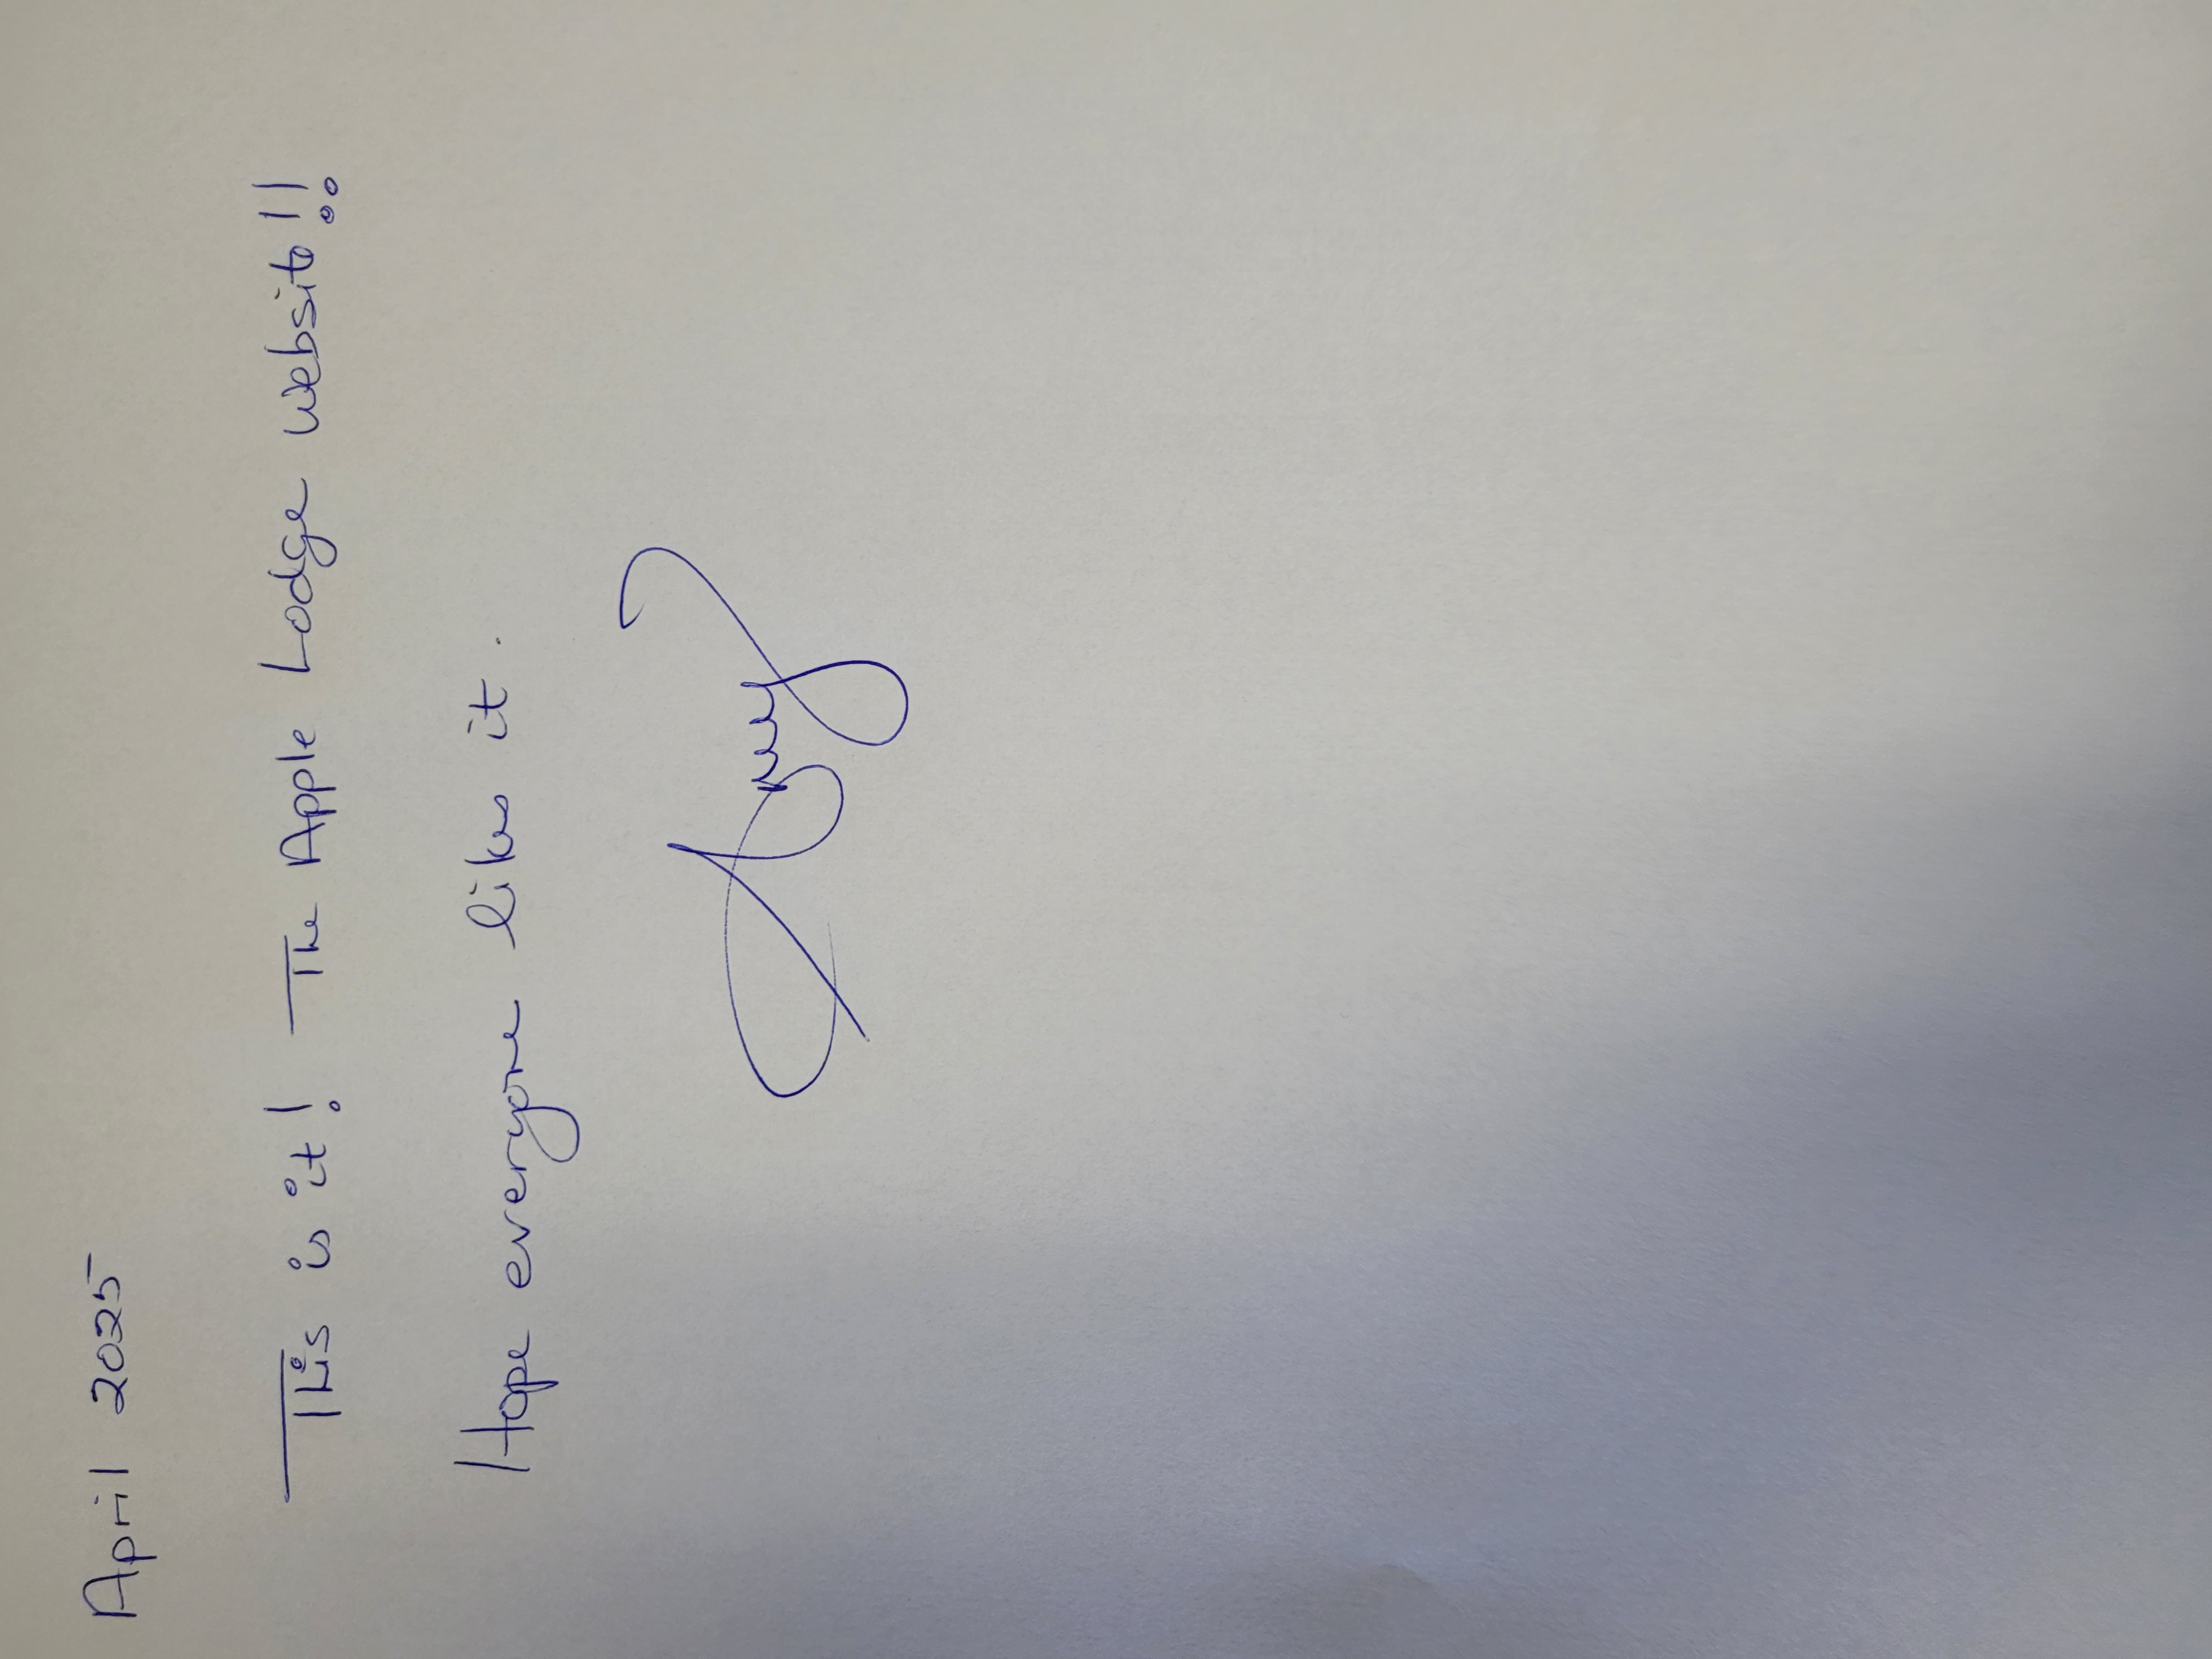 April 2025
This is it! The Apple Lodge website!!
Hope everyone likes it.
Amy